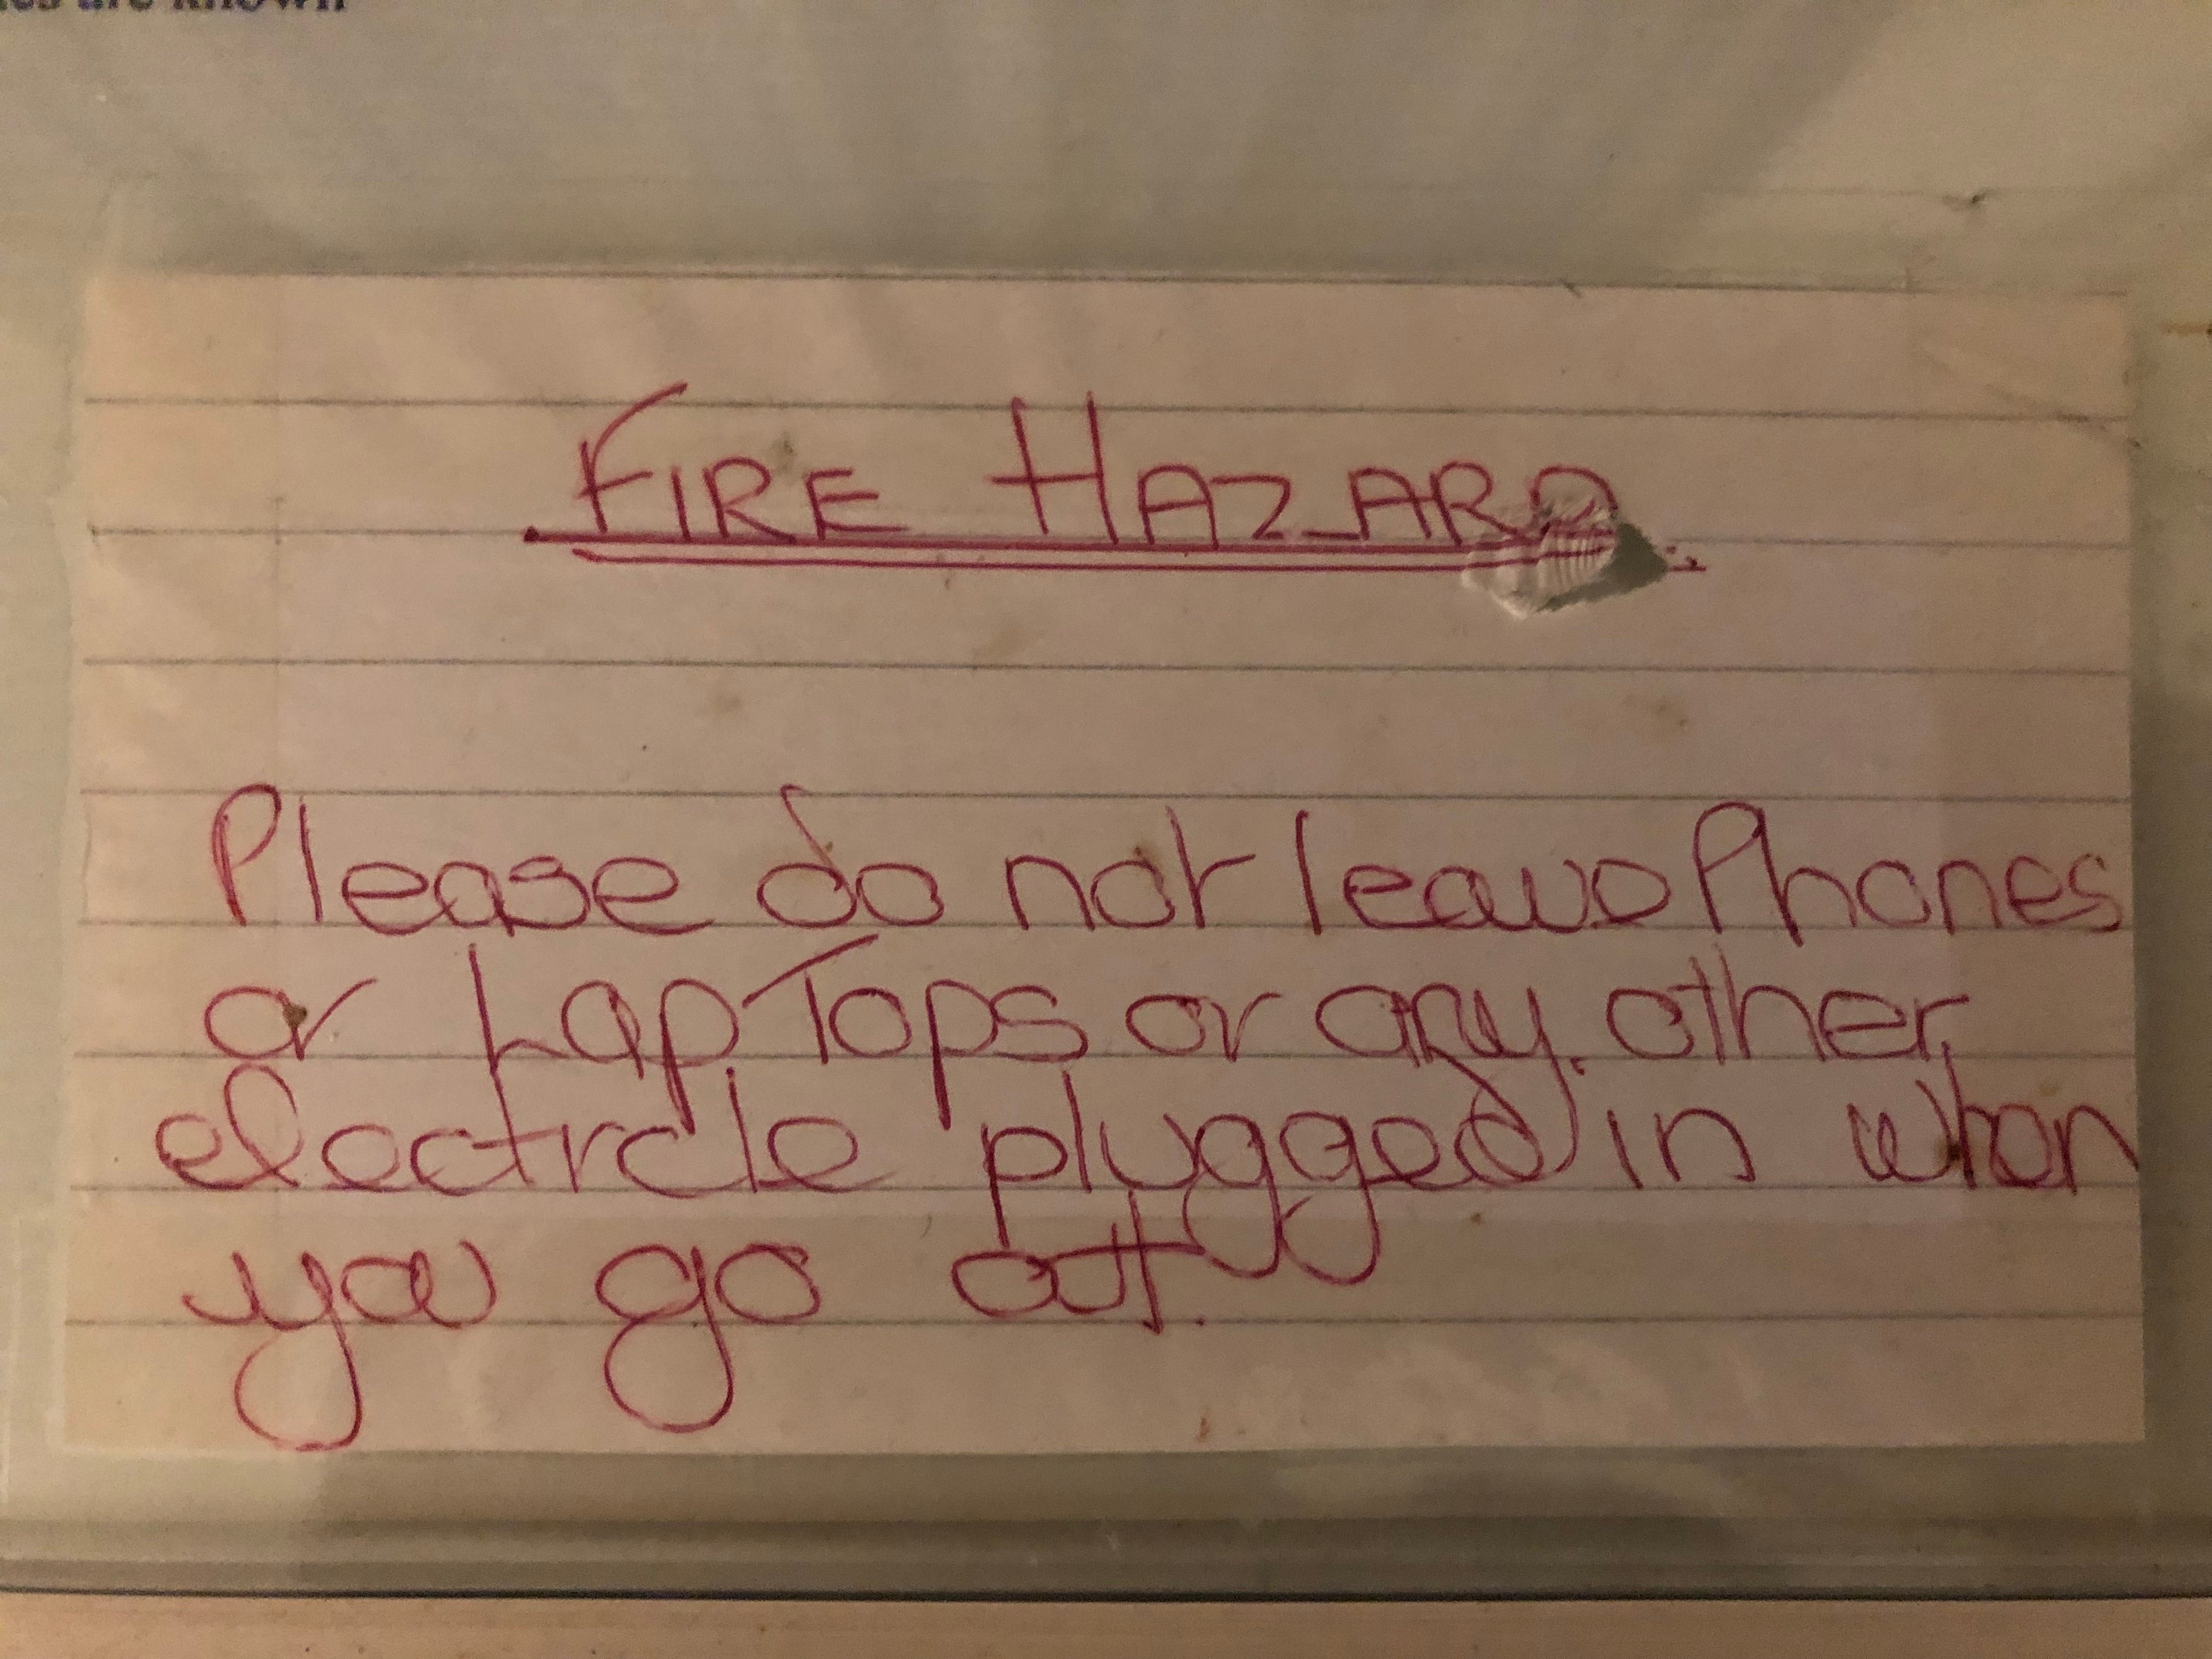 are known
FIRE HAZARD
Please do not leave Phones
or LapTops or any other
electrcle plugged in when
you go out.